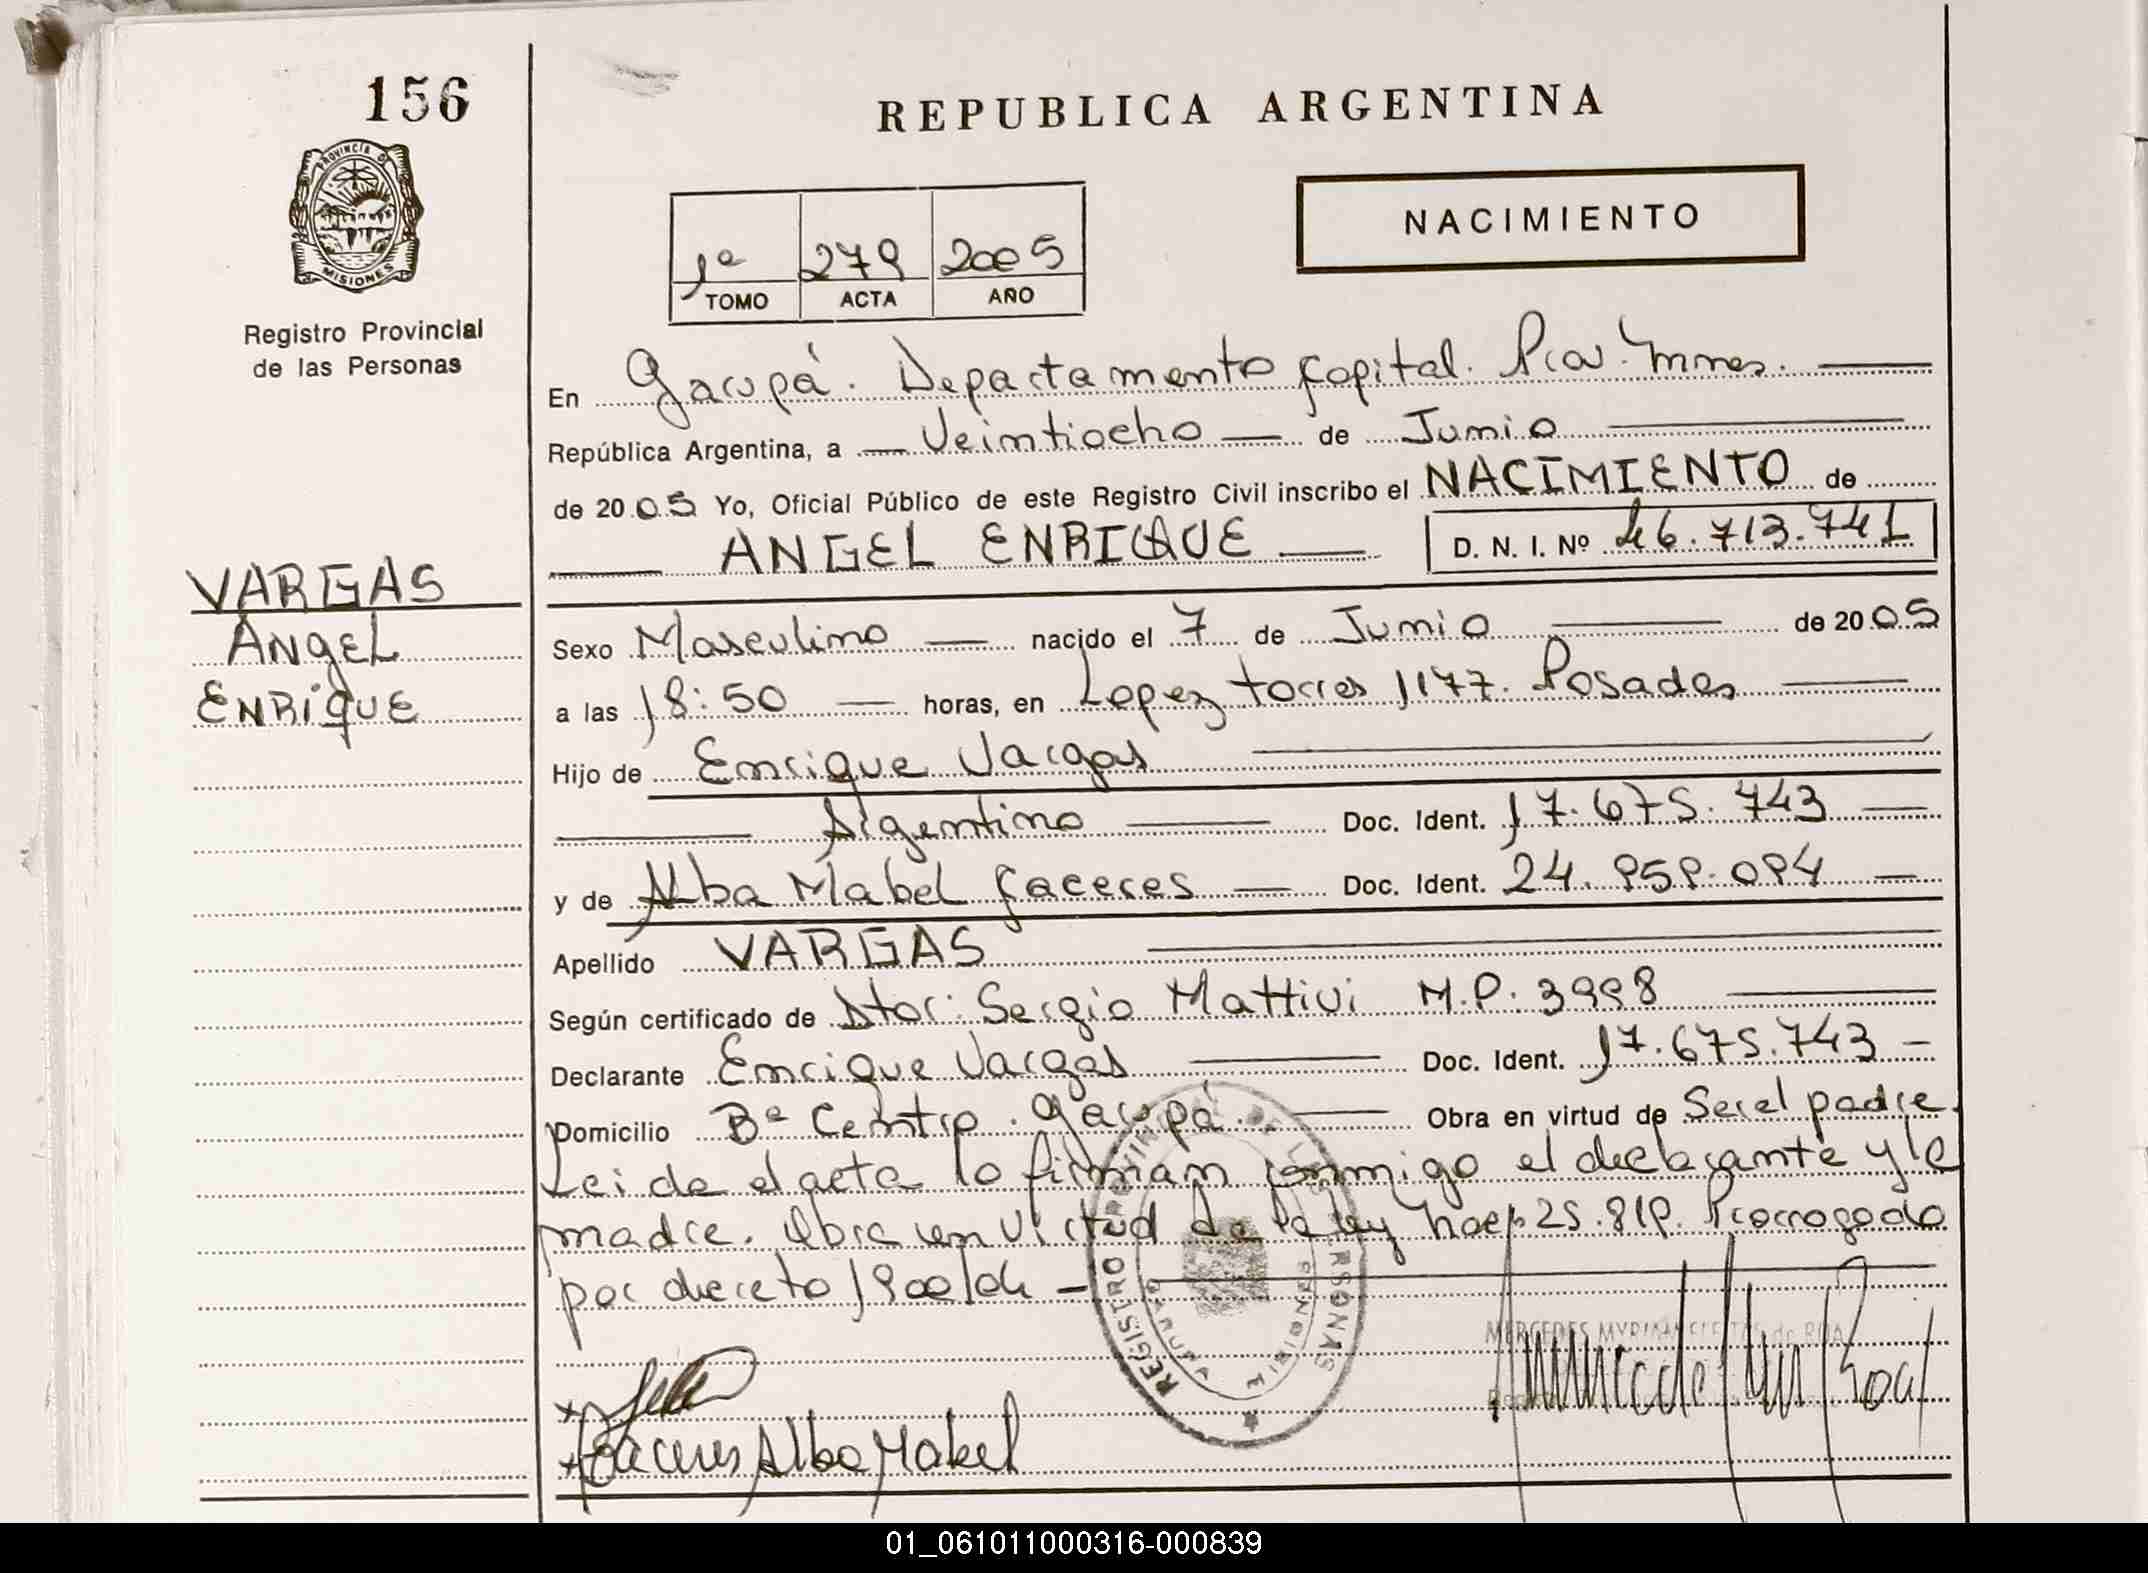 156
REPUBLICA ARGENTINA
PROVINCIA DE
MISIONES
Registro Provincial
de las Personas
NACIMIENTO
1º 279 2005
TOMO ACTA AÑO
En Garupá. Departamento Capital. Pcia. Mnes.
República Argentina, a Veintiocho de Junio
de 2005 Yo, Oficial Público de este Registro Civil inscribo el NACIMIENTO de
ANGEL ENRIQUE D. N. I. Nº 46.713.741
VARGAS
Angel
ENRiqUE
Sexo Masculino nacido el 7 de Junio de 2005
a las 18:50 horas, en Lopez torres 1177. Posadas
Hijo de Enrique Vargas
Argentino Doc. Ident. 17.675.743
y de Alba Mabel Caceres Doc. Ident. 24.959.094
Apellido VARGAS
Según certificado de Dtor: Sergio Mattivi M.P. 3998
Declarante Enrique Vargas Doc. Ident. 17.675.743
Domicilio Bº Centro. Garupá. Obra en virtud de Ser el padre.
Leida el acta lo firman conmigo el declarante y la
madre. Obra en virtud de la ley 25.819. Prorrogado
por decreto 1900/04
REGISTRO PROVINCIAL DE LAS PERSONAS
GARUPA MISIONES
MERCEDES MYRIAM de ROA
Caceres Alba Mabel
01_061011000316-000839